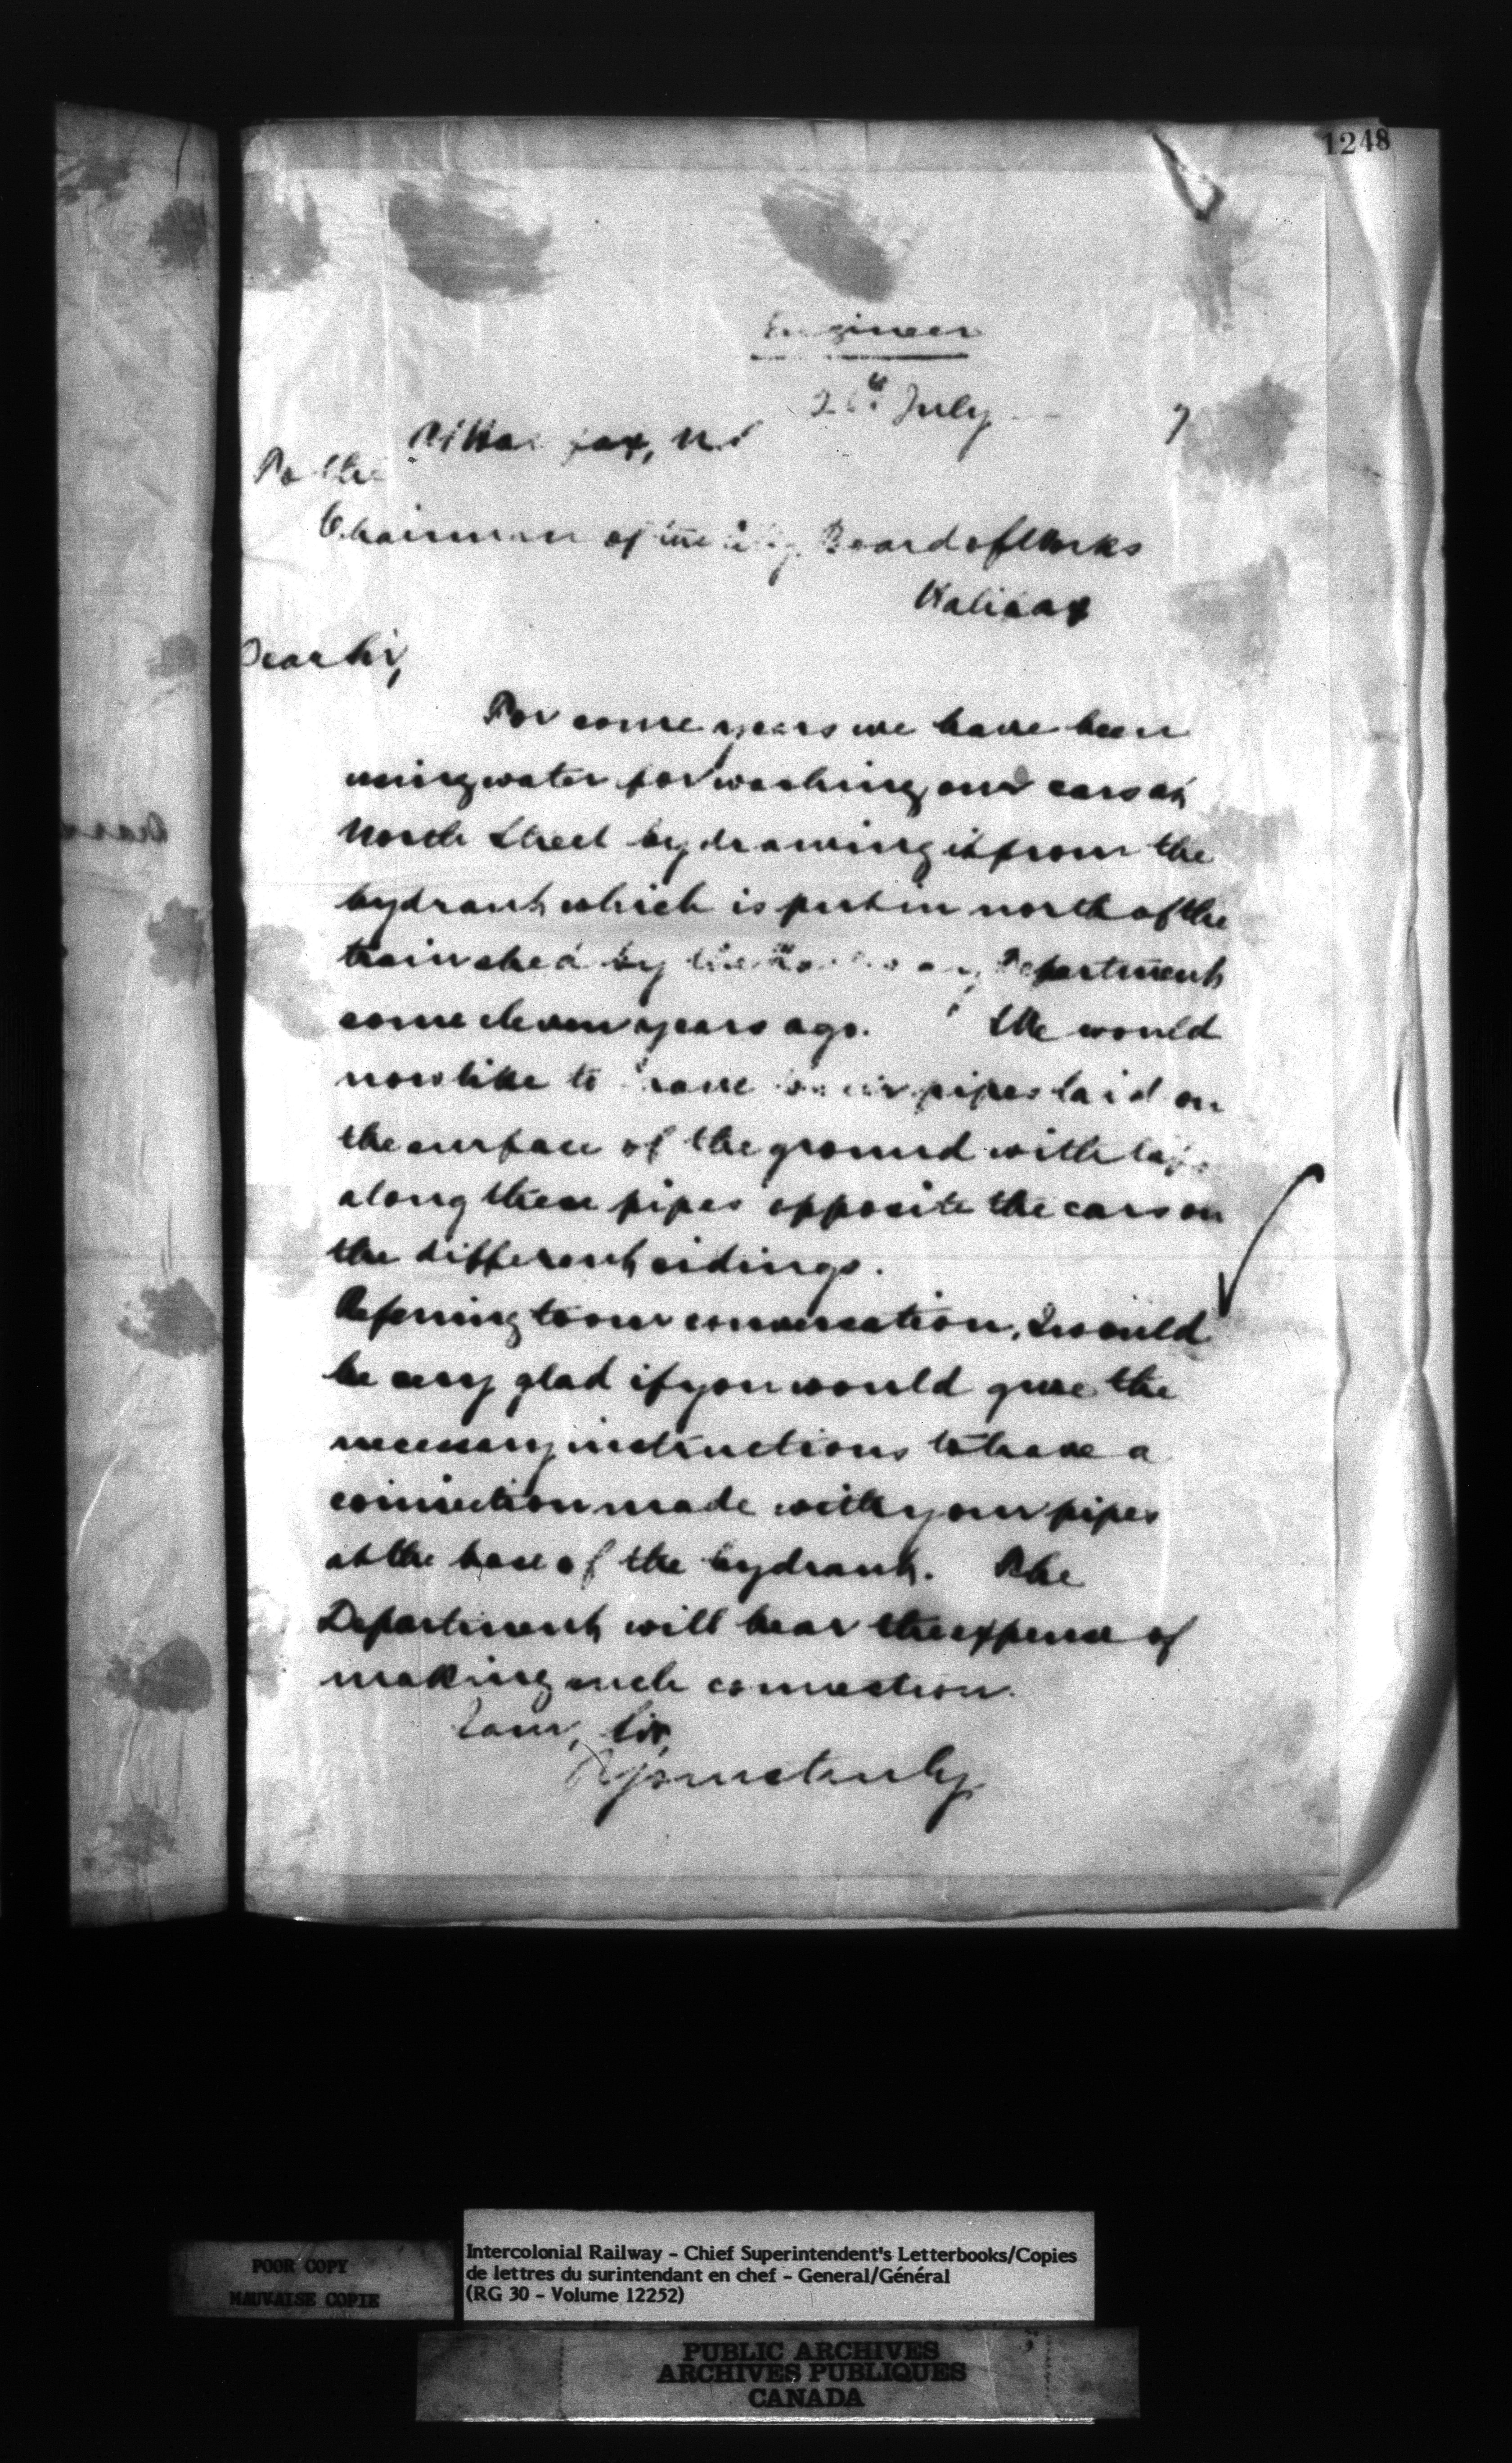 1248
Engineer
July 7
To the
Chairman of the City Board of Works
Halifax
Dear Sir,
For some years we have been
using water for washing our cars at
North Street by drawing it from the
hydrant which is put in north of the
train shed by the Railway Department
some eleven years ago. We would
now like to have pipes laid on
the surface of the ground with taps
along these pipes opposite the cars on
the different sidings.
Referring to our conversation, I would
be very glad if you would give the
necessary instructions to have a
connection made with your pipes
at the base of the hydrant. The
Department will bear the expense of
making such connection.
I am, Sir,
Yours truly
POOR COPY
MAUVAISE COPIE
Intercolonial Railway - Chief Superintendent's Letterbooks/Copies
de lettres du surintendant en chef - General/Général
(RG 30 - Volume 12252)
PUBLIC ARCHIVES
ARCHIVES PUBLIQUES
CANADA